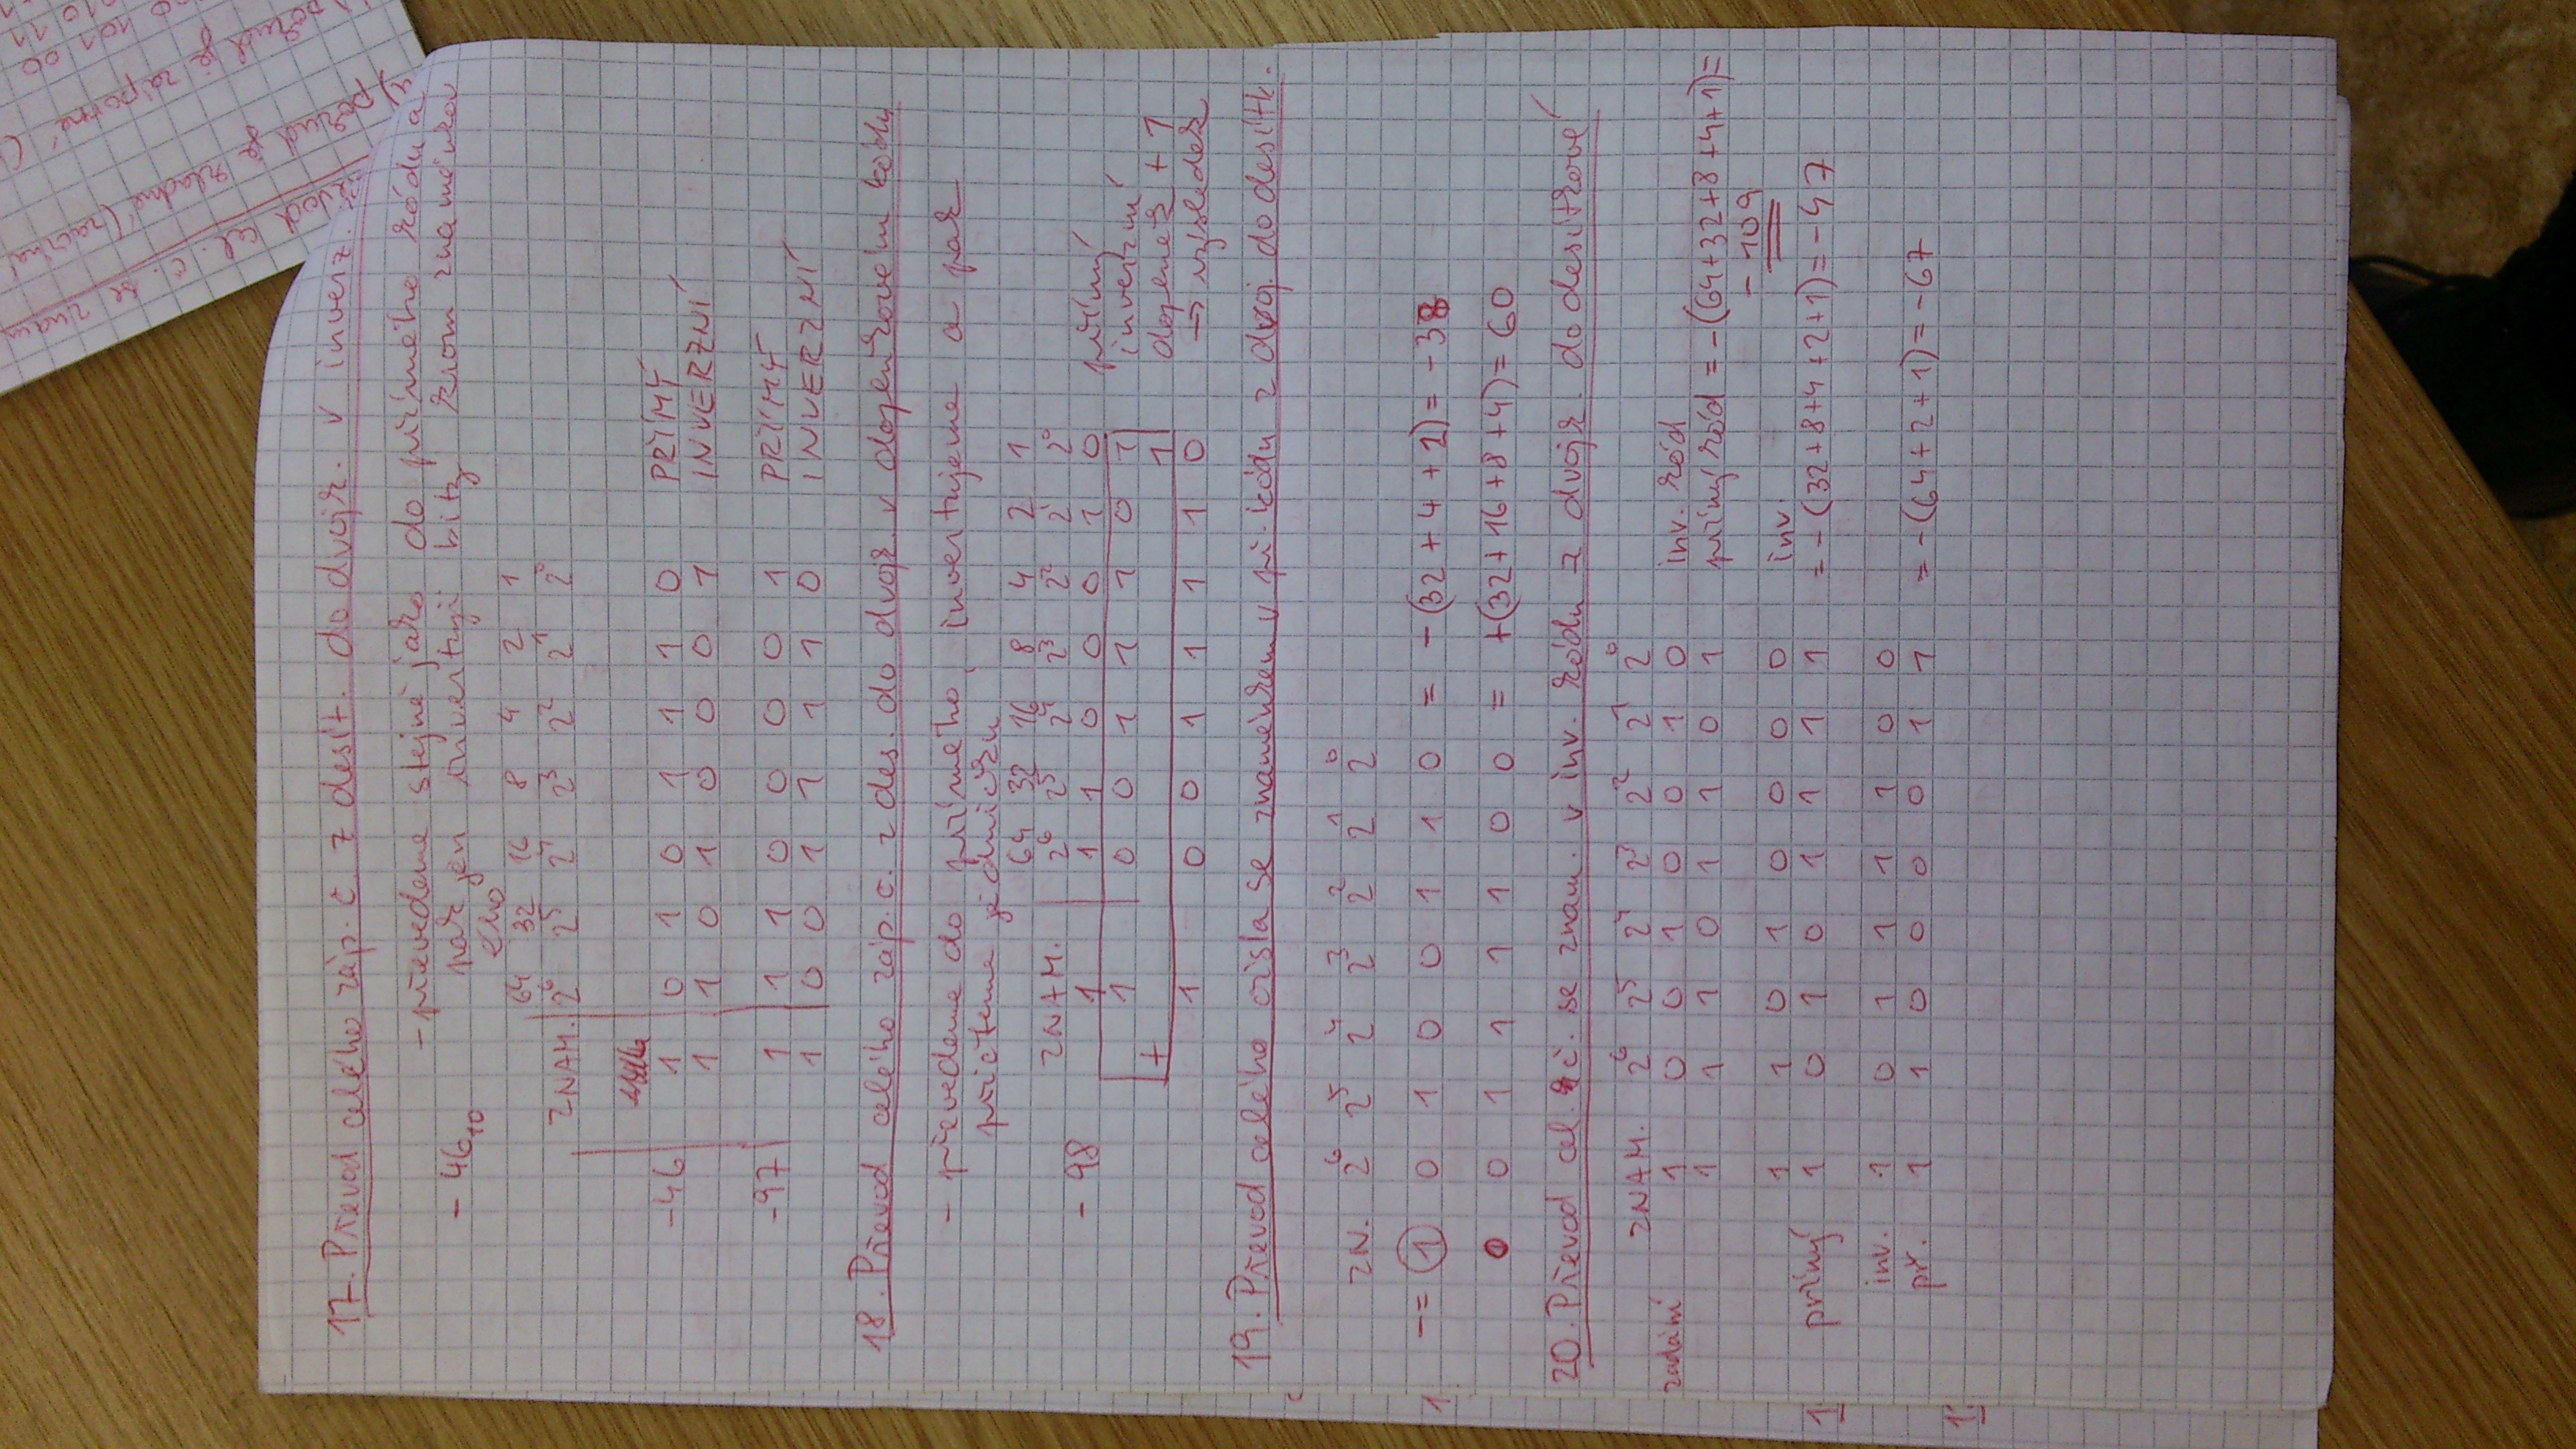 17. Převod celého záp. č z desít. do dvojk. v inverz.
- převedeme stejně jako do přímého kódu a
- 46₁₀ pak jen invertuji bity krom znaménkov
ého
64 32 16 8 4 2 1
ZNAM. 2⁶ 2⁵ 2⁴ 2³ 2² 2¹ 2⁰
-46 1 0 1 0 1 1 1 0 PŘÍMÝ
1 1 0 1 0 0 0 1 INVERZNÍ
-97 1 1 1 0 0 0 0 1 PŘÍMÝ
1 0 0 1 1 1 1 0 INVERZNÍ
18. Převod celého záp. č. z des. do dvojk. v doplňkovém kódu
- převedeme do přímého, invertujeme a pak
přičteme jedničku
64 32 16 8 4 2 1
ZNAM. 2⁶ 2⁵ 2⁴ 2³ 2² 2¹ 2⁰
- 98 1 1 1 0 0 0 1 0 přímý
1 0 0 1 1 1 0 1 inverzní
+ 1 doplněk + 1
1 0 0 1 1 1 1 0 → výsledek
19. Převod celého čísla se znaménkem v př. kódu z dvoj. do desítk.
ZN. 2⁶ 2⁵ 2⁴ 2³ 2² 2¹ 2⁰
- = 1 0 1 0 0 1 1 0 = - (32 + 4 + 2) = - 38
0 0 1 1 1 1 0 0 = + (32 + 16 + 8 + 4) = 60
20. Převod cel. č. se znam. v inv. kódu z dvojk. do desítkové
ZNAM. 2⁶ 2⁵ 2⁴ 2³ 2² 2¹ 2⁰
zadání 1 0 0 1 0 0 1 0 inv. kód
1 1 1 0 1 1 0 1 přímý kód = - (64+32+8+4+1) =
- 109
1 1 0 1 0 0 0 0 inv.
přímý 1 0 1 0 1 1 1 1 = - (32+8+4+2+1) = - 47
inv. 1 0 1 1 1 1 0 0
př. 1 1 0 0 0 0 1 1 = - (64+2+1) = -67